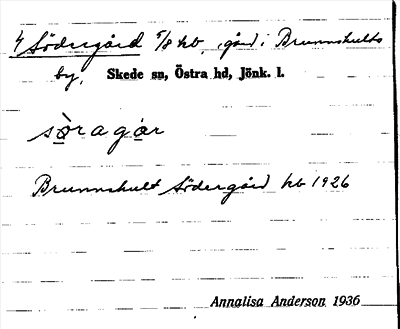 4 Södergård 5/8 hb, gård i Brunnshults
by, Skede sn, Östra hd, Jönk. l.
sòragar
Brunnshult Södergård hb 1926
Annalisa Anderson 1936